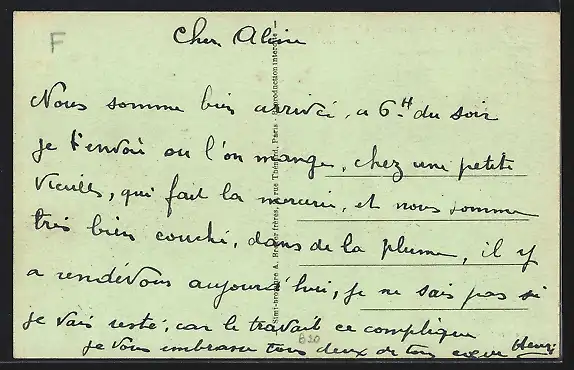 F
Cher Aline
Nous somme bien arrivée, a 6H du soir
je t'envoie ou l'on mange, chez une petite
vieille, qui fait la mercerie, et nous somme
très bien couché, dans de la plume, il y
a rendévous aujourd'hui, je ne sais pas si
je vais resté, car le travail ce complique
je vous embrasse tous deux de tou coeur Henri
Simi-bromure A. Breger frères, rue Thénard, Paris - Reproduction interdite
B20